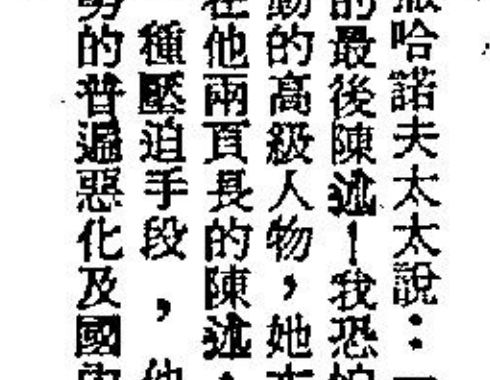 哈諾夫太太說：
的最後陳述！我恐怕
動的高級人物，她
在他兩頁長的陳述，
種壓迫手段，他
勢的普遍惡化及國